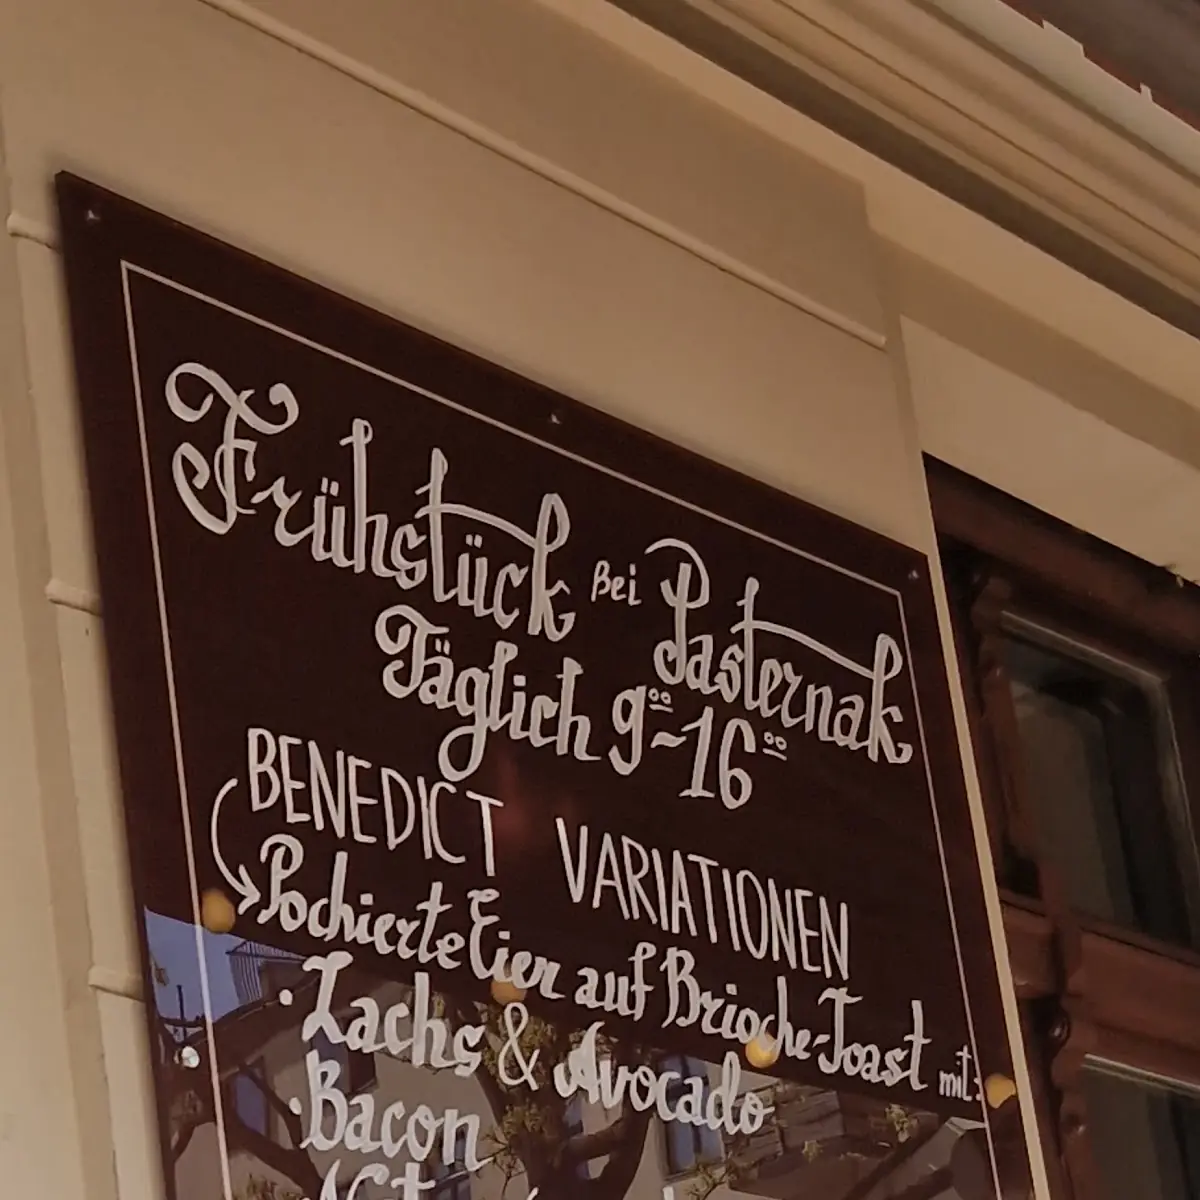 Frühstück Bei Pasternak
Täglich 9⁰⁰~16⁰⁰
BENEDICT VARIATIONEN
Pochierte Eier auf Brioche-Toast mit:
· Lachs & Avocado
· Bacon